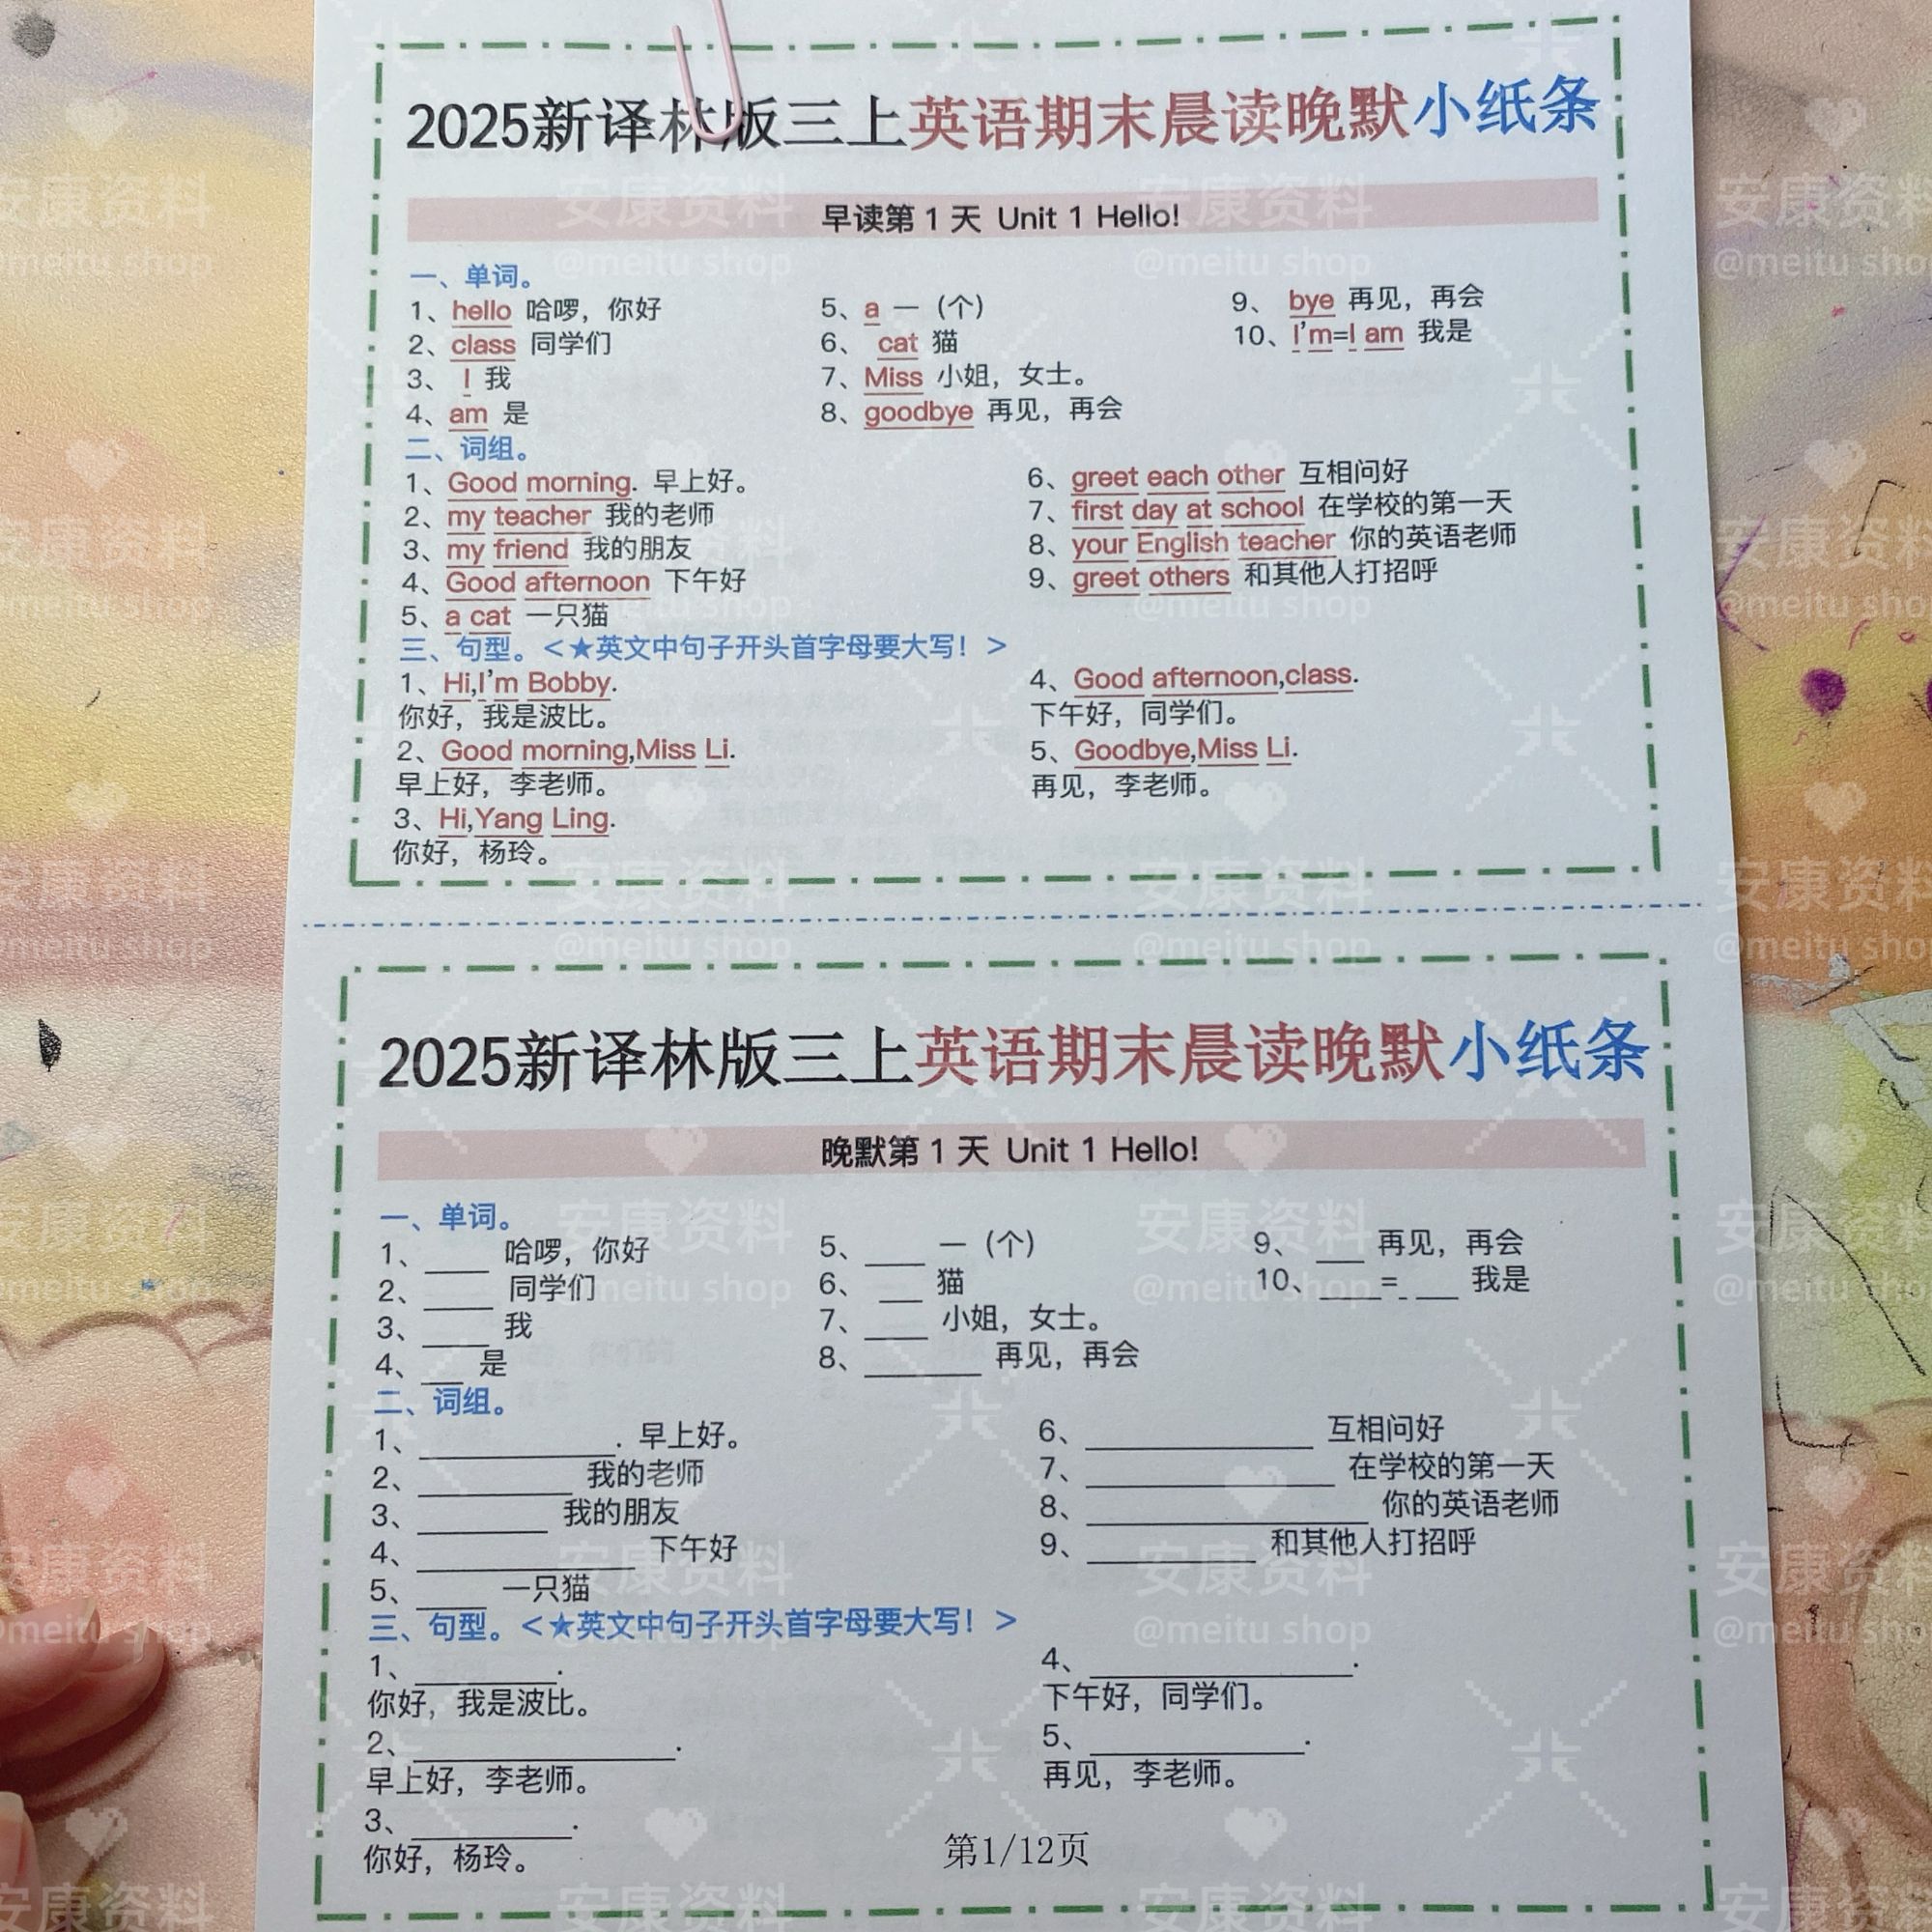 2025新译林版三上英语期末晨读晚默小纸条
早读第 1 天 Unit 1 Hello!
一、单词。
1、hello 哈啰，你好
2、class 同学们
3、I 我
4、am 是
5、a 一（个）
6、cat 猫
7、Miss 小姐，女士。
8、goodbye 再见，再会
9、bye 再见，再会
10、I'm=I am 我是
二、词组。
1、Good morning. 早上好。
2、my teacher 我的老师
3、my friend 我的朋友
4、Good afternoon 下午好
5、a cat 一只猫
6、greet each other 互相问好
7、first day at school 在学校的第一天
8、your English teacher 你的英语老师
9、greet others 和其他人打招呼
三、句型。<★英文中句子开头首字母要大写！>
1、Hi,I'm Bobby.
你好，我是波比。
2、Good morning,Miss Li.
早上好，李老师。
3、Hi,Yang Ling.
你好，杨玲。
4、Good afternoon,class.
下午好，同学们。
5、Goodbye,Miss Li.
再见，李老师。
2025新译林版三上英语期末晨读晚默小纸条
晚默第 1 天 Unit 1 Hello!
一、单词。
1、____ 哈啰，你好
2、____ 同学们
3、____ 我
4、___ 是
5、____ 一（个）
6、___ 猫
7、____ 小姐，女士。
8、________ 再见，再会
9、___ 再见，再会
10、____=_ ___ 我是
二、词组。
1、_____________. 早上好。
2、__________ 我的老师
3、_________ 我的朋友
4、______________ 下午好
5、_____ 一只猫
6、_______________ 互相问好
7、________________ 在学校的第一天
8、__________________ 你的英语老师
9、___________ 和其他人打招呼
三、句型。<★英文中句子开头首字母要大写！>
1、_________.
你好，我是波比。
2、_________________.
早上好，李老师。
3、__________.
你好，杨玲。
4、_________________.
下午好，同学们。
5、______________.
再见，李老师。
第1/12页
安康资料
@meitu shop